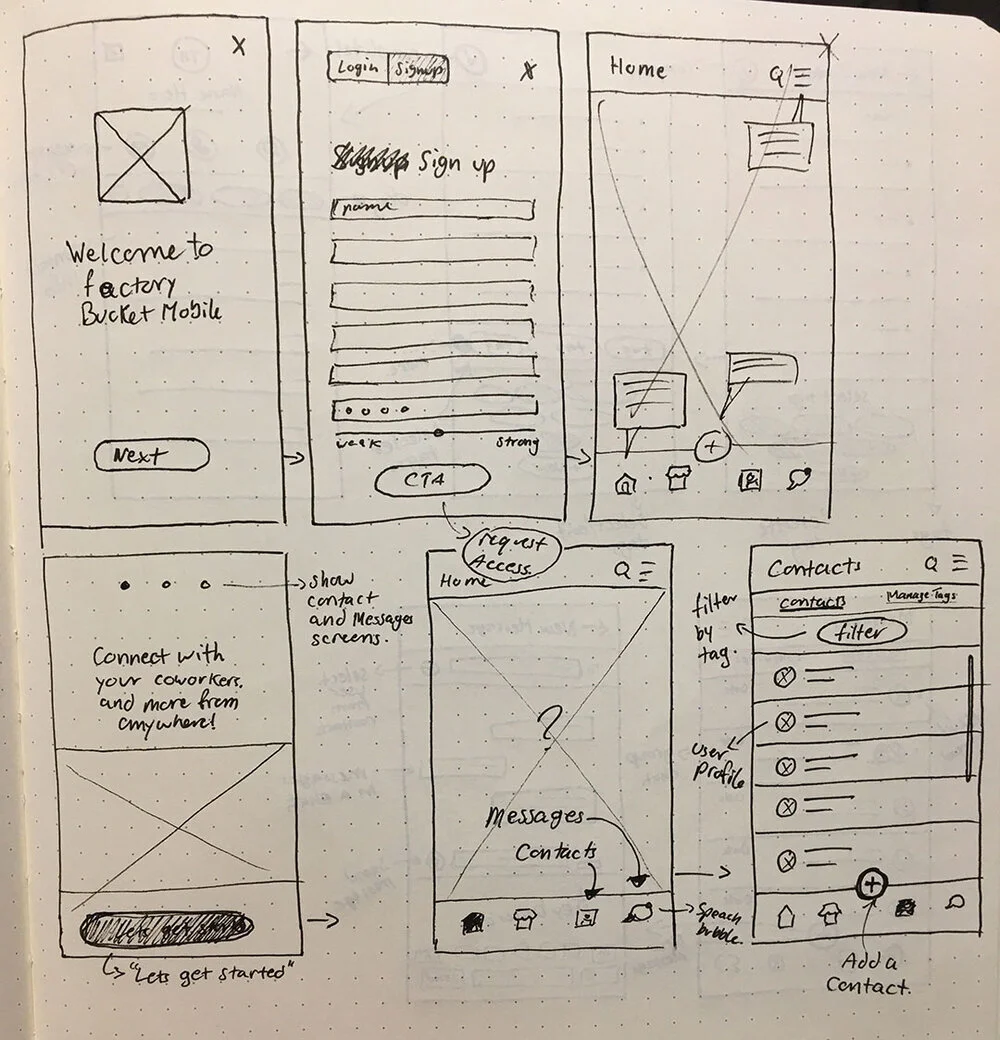 X
Welcome to
factory
Bucket Mobile
Next
Login
Signup
X
Sign up
name
weak
strong
CTA
request
Access.
Home
X
show
contact
and Messages
screens.
Connect with
your coworkers,
and more from
anywhere!
Lets get
"Lets get started"
Home
?
Messages
Contacts
Speach
bubble.
Contacts
contacts
Manage Tags
filter
filter
by
tag.
user
Profile
Add a
Contact.